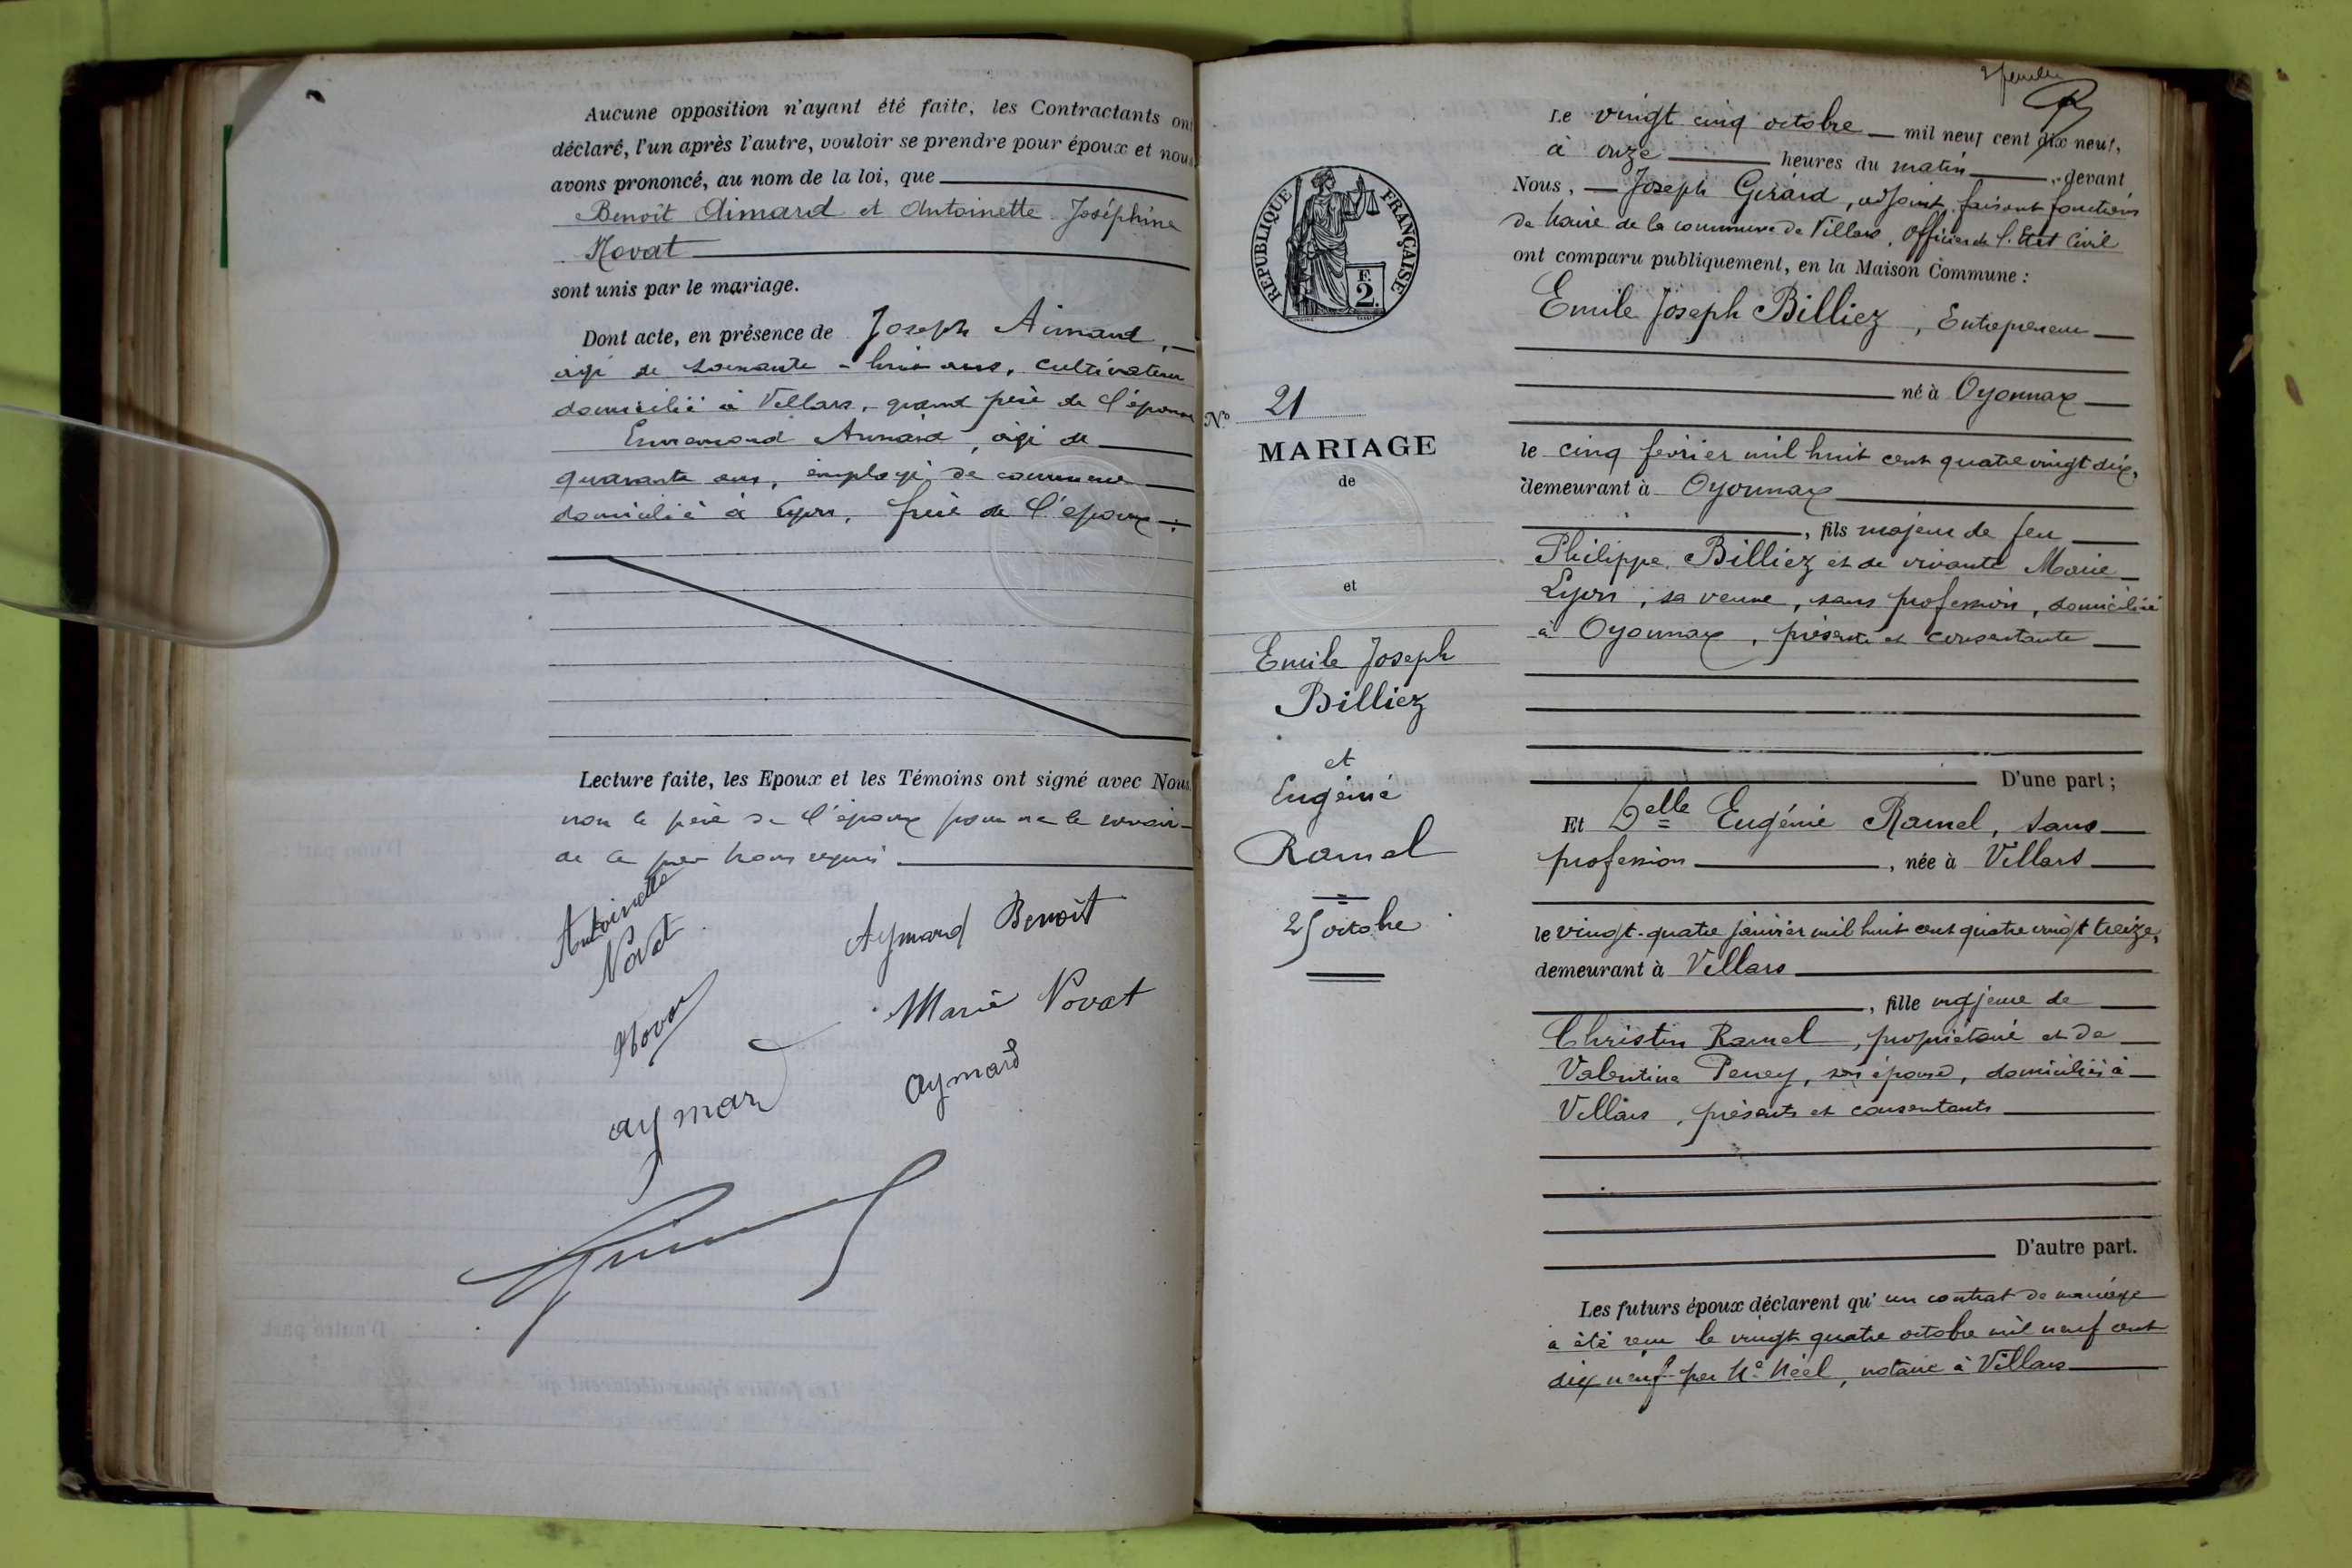 Aucune opposition n'ayant été faite, les Contractants ont
déclaré, l'un après l'autre, vouloir se prendre pour époux et nous
avons prononcé, au nom de la loi, que
Benoît Aimard et Antoinette Joséphine
Novat
sont unis par le mariage.
Dont acte, en présence de Joseph Aimard,
âgé de soixante-huit ans, cultivateur
domicilié à Villars, grand père de l'épouse
Aimard, âgé de
quarante ans, employé de commerce
domicilié à Lyon, frère de l'époux :
Lecture faite, les Epoux et les Témoins ont signé avec Nous
non le père de l'époux pour ne le savoir
de ce par nous requis.
Antoinette
Novat
Aymard Benoît
Novat
Marie Novat
aymard
aymard
REPUBLIQUE FRANÇAISE
F.
2.
No 21
MARIAGE
de
et
Emile Joseph
Billiez
et
Eugénie
Ramel
25 octobre
Le vingt cinq octobre mil neuf cent dix neuf,
à onze heures du matin, devant
Nous, Joseph Girard, adjoint, faisant fonctions
de Maire de la commune de Villars, Officier de l'Etat Civil
ont comparu publiquement, en la Maison Commune :
Emile Joseph Billiez, Entrepreneur
né à Oyonnax
le cinq février mil huit cent quatre vingt dix,
demeurant à Oyonnax
, fils majeur de feu
Philippe Billiez et de vivante Marie
Lyon, sa veuve, sans profession, domiciliée
à Oyonnax, présente et consentante
D'une part ;
Et Delle Eugénie Ramel, sans
profession, née à Villars
le vingt-quatre janvier mil huit cent quatre vingt treize,
demeurant à Villars
, fille majeure de
Christin Ramel, propriétaire et de
Valentine Perrey, son épouse, domiciliés à
Villars, présents et consentants
D'autre part.
Les futurs époux déclarent qu'un contrat de mariage
a été reçu le vingt quatre octobre mil neuf cent
dix neuf par Me Néel, notaire à Villars